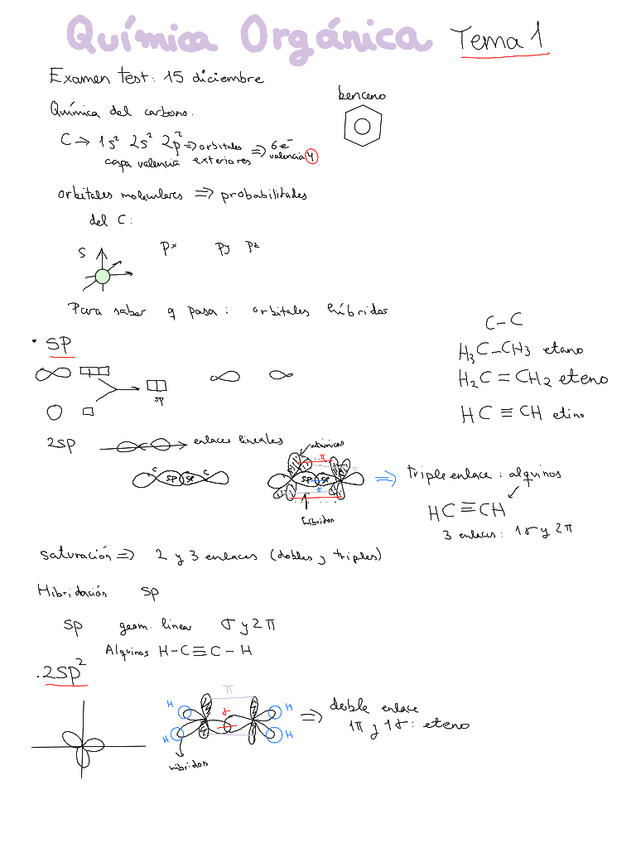 Química Orgánica Tema 1
Examen test: 15 diciembre
benceno
Química del carbono.
C → 1s² 2s² 2p² ⇒ orbitales exteriores ⇒ 6e⁻ valencia 4
capa valencia
orbitales moleculares ⇒ probabilidades
del C:
S px py pz
Para saber q pasa: orbitales híbridos
C-C
• SP
H₃C-CH₃ etano
H₂C=CH₂ eteno
sp
HC≡CH etino
2SP enlaces lineales
atómicos
π
C SP SP C
SP SP
σ
híbridos
⇒ triple enlace: alquinos
HC≡CH
3 enlaces: 1σ y 2π
saturación ⇒ 2 y 3 enlaces (dobles y triples)
Hibridación sp
sp geom. linear σ y 2π
Alquinos H-C≡C-H
.2sp²
π
H H
σ
H H
híbridos
⇒ doble enlace
1π y 1σ: eteno